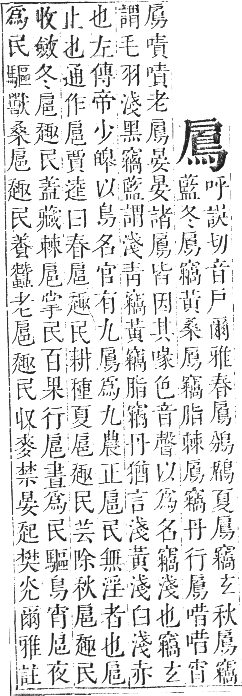 鳸
呼誤切音戶爾雅春鳸鳻鶞夏鳸竊玄秋鳸竊
藍冬鳸竊黃桑鳸竊脂棘鳸竊丹行鳸唶唶宵
鳸嘖嘖老鳸晏晏諸鳸皆因其喙色音聲以爲名竊淺也竊玄
謂毛羽淺黑竊藍謂淺青竊黃竊脂竊丹猶言淺黃淺白淺赤
也左傳帝少皞以鳥名官有九鳸爲九農正扈民無淫者也扈
止也通作扈賈逵曰春扈趣民耕種夏扈趣民芸除秋扈趣民
收斂冬扈趣民蓋藏棘扈掌民百果行扈晝爲民驅鳥宵扈夜
爲民驅獸桑扈趣民養蠶老扈趣民收麥禁晏起樊光爾雅註